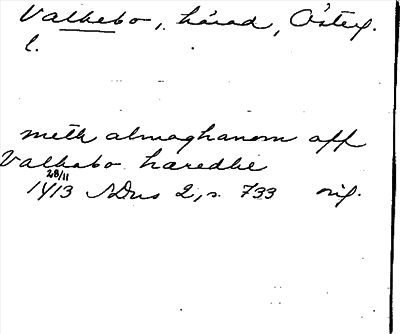 Valkebo, härad, Österg.
l.
meth almoghanom aff
Valkabo haredhe
28/11
1413 SDns 2, s. 733 orig.